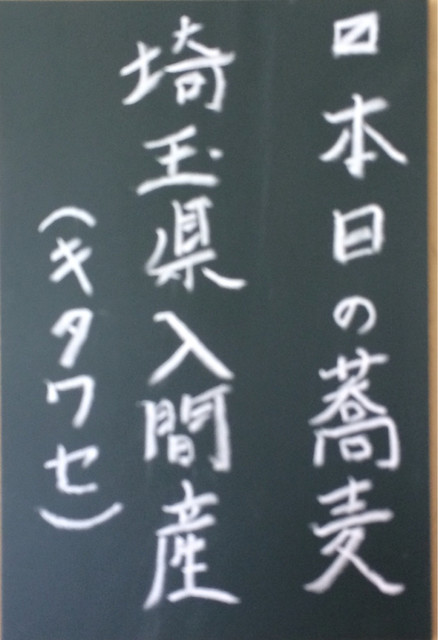 〼本日の蕎麦
埼玉県入間産
(キタワセ)